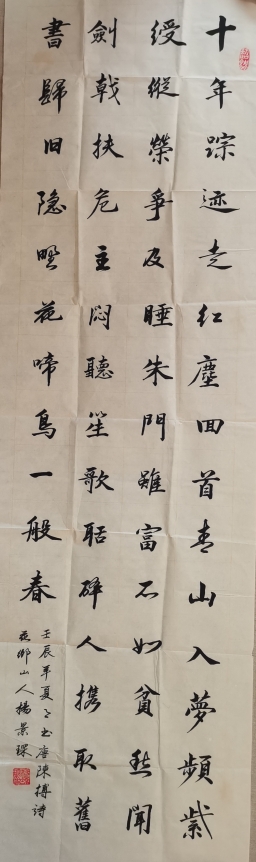 十年踪迹走红塵回首青山入夢頻紫
綬縱榮争及睡朱門雖富不如貧愁聞
劍戟扶危主悶聽笙歌聒醉人携取舊
書歸旧隐野花啼鳥一般春
壬辰年夏月书唐陳摶诗
山人楊景琛